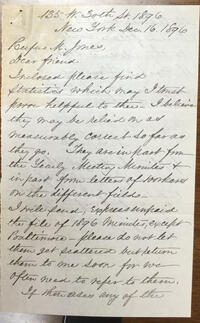 135 W. 30th St. 1896
New York Dec. 16. 1896
Rufus M. Jones,
Dear friend
Inclosed please find
Statistics which may I trust
prove helpful to thee. I believe
they may be relied on as
measurably correct so far as
they go. They are in part from
the Yearly Meeting Minutes &
in part from letters of workers
on the different field.
I will send, Express unpaid
the file of 1896 Minutes, except
Baltimore — please do not let
them get scattered but return
them to me soon for we
often need to refer to them.
If thee uses any of the